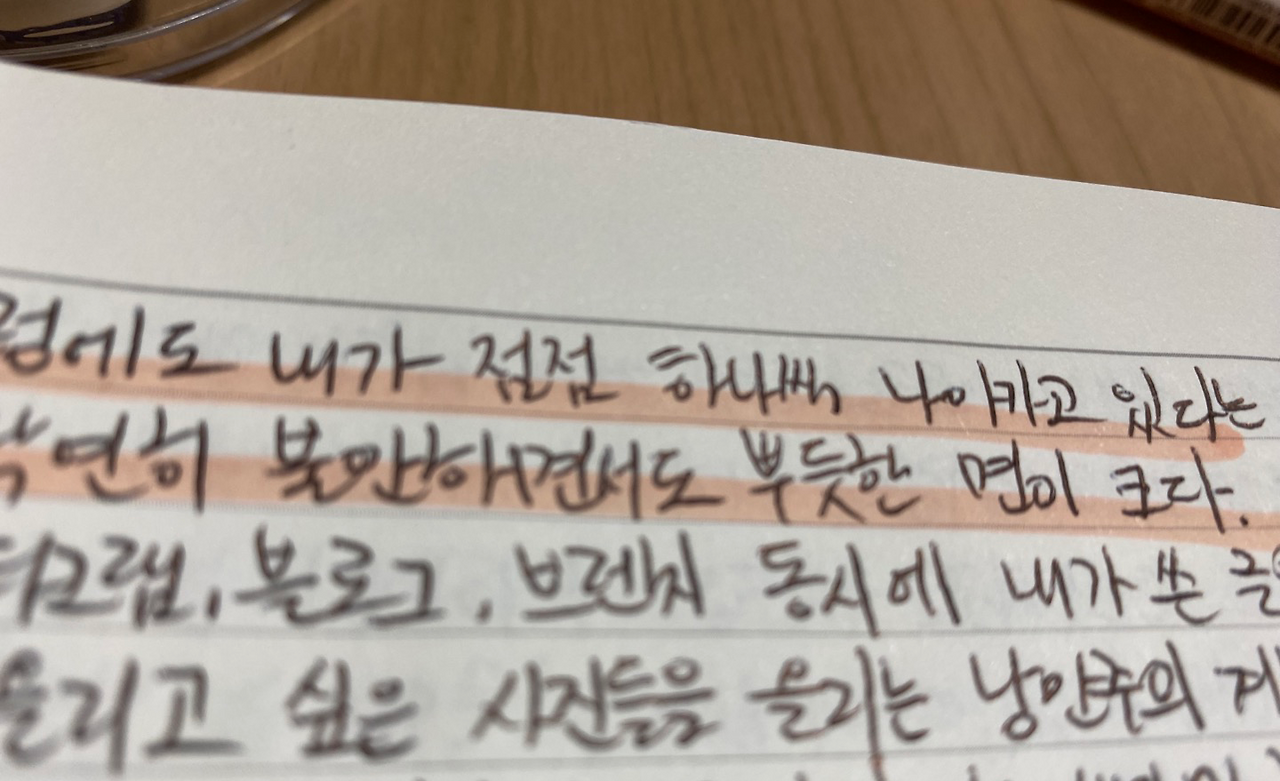 에도 내가 점점 하나씩 나아가고 있다는
연히 불안하면서도 뿌듯한 면이 크다.
그램, 블로그, 브런치 동시에 내가 쓴 글
올리고 싶은 사진들을 올리는 낭만주의